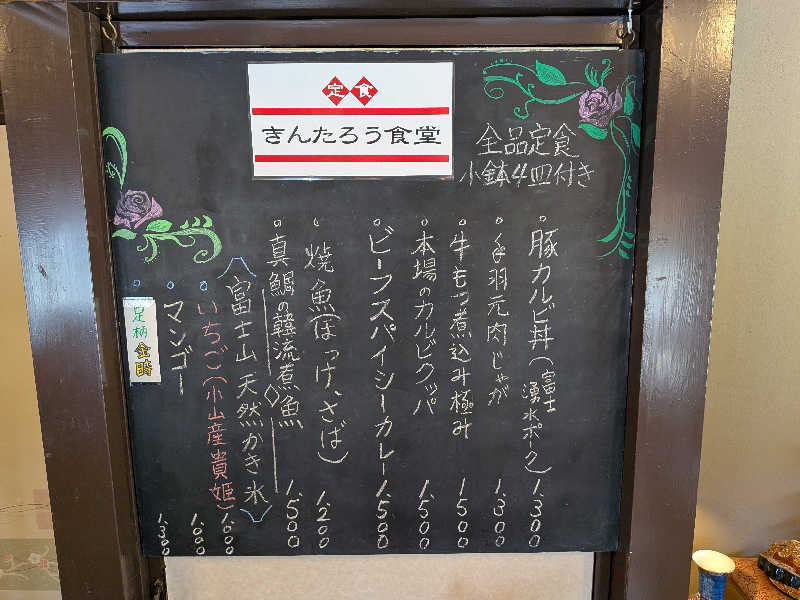 定食
きんたろう食堂
全品定食
小鉢4皿付き
。豚カルビ丼（富士湧水ポーク）1,300
。手羽元肉じゃが 1,300
。牛もつ煮込み極み 1,500
。本場のカルビクッパ 1,500
。ビーフスパイシーカレー 1,500
。焼魚（ほっけ、さば）1,200
。真鯛の韓流煮魚 1,500
〈富士山天然かき氷〉
。いちご（小山産貴姫）1,000
。マンゴー 1,000
。足柄金時 1,300